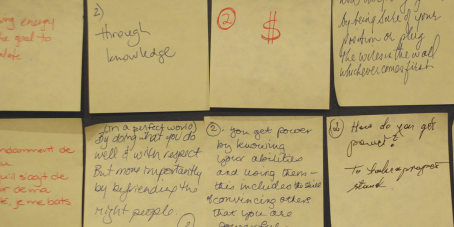 energy
the goal to
2)
through
knowledge
2
$
by being sure of your
position or play
the wires in the wall
whichever comes first
(in a perfect world)
By doing what you do
well & with respect
But more importantly
by befriending the
right people.
2. you get power
by knowing
your abilities
and using them -
this includes the
convincing others
that you are
2 How do you get
power?
To take a proper
stand.
de
sicait de
de ma
é, je me bats